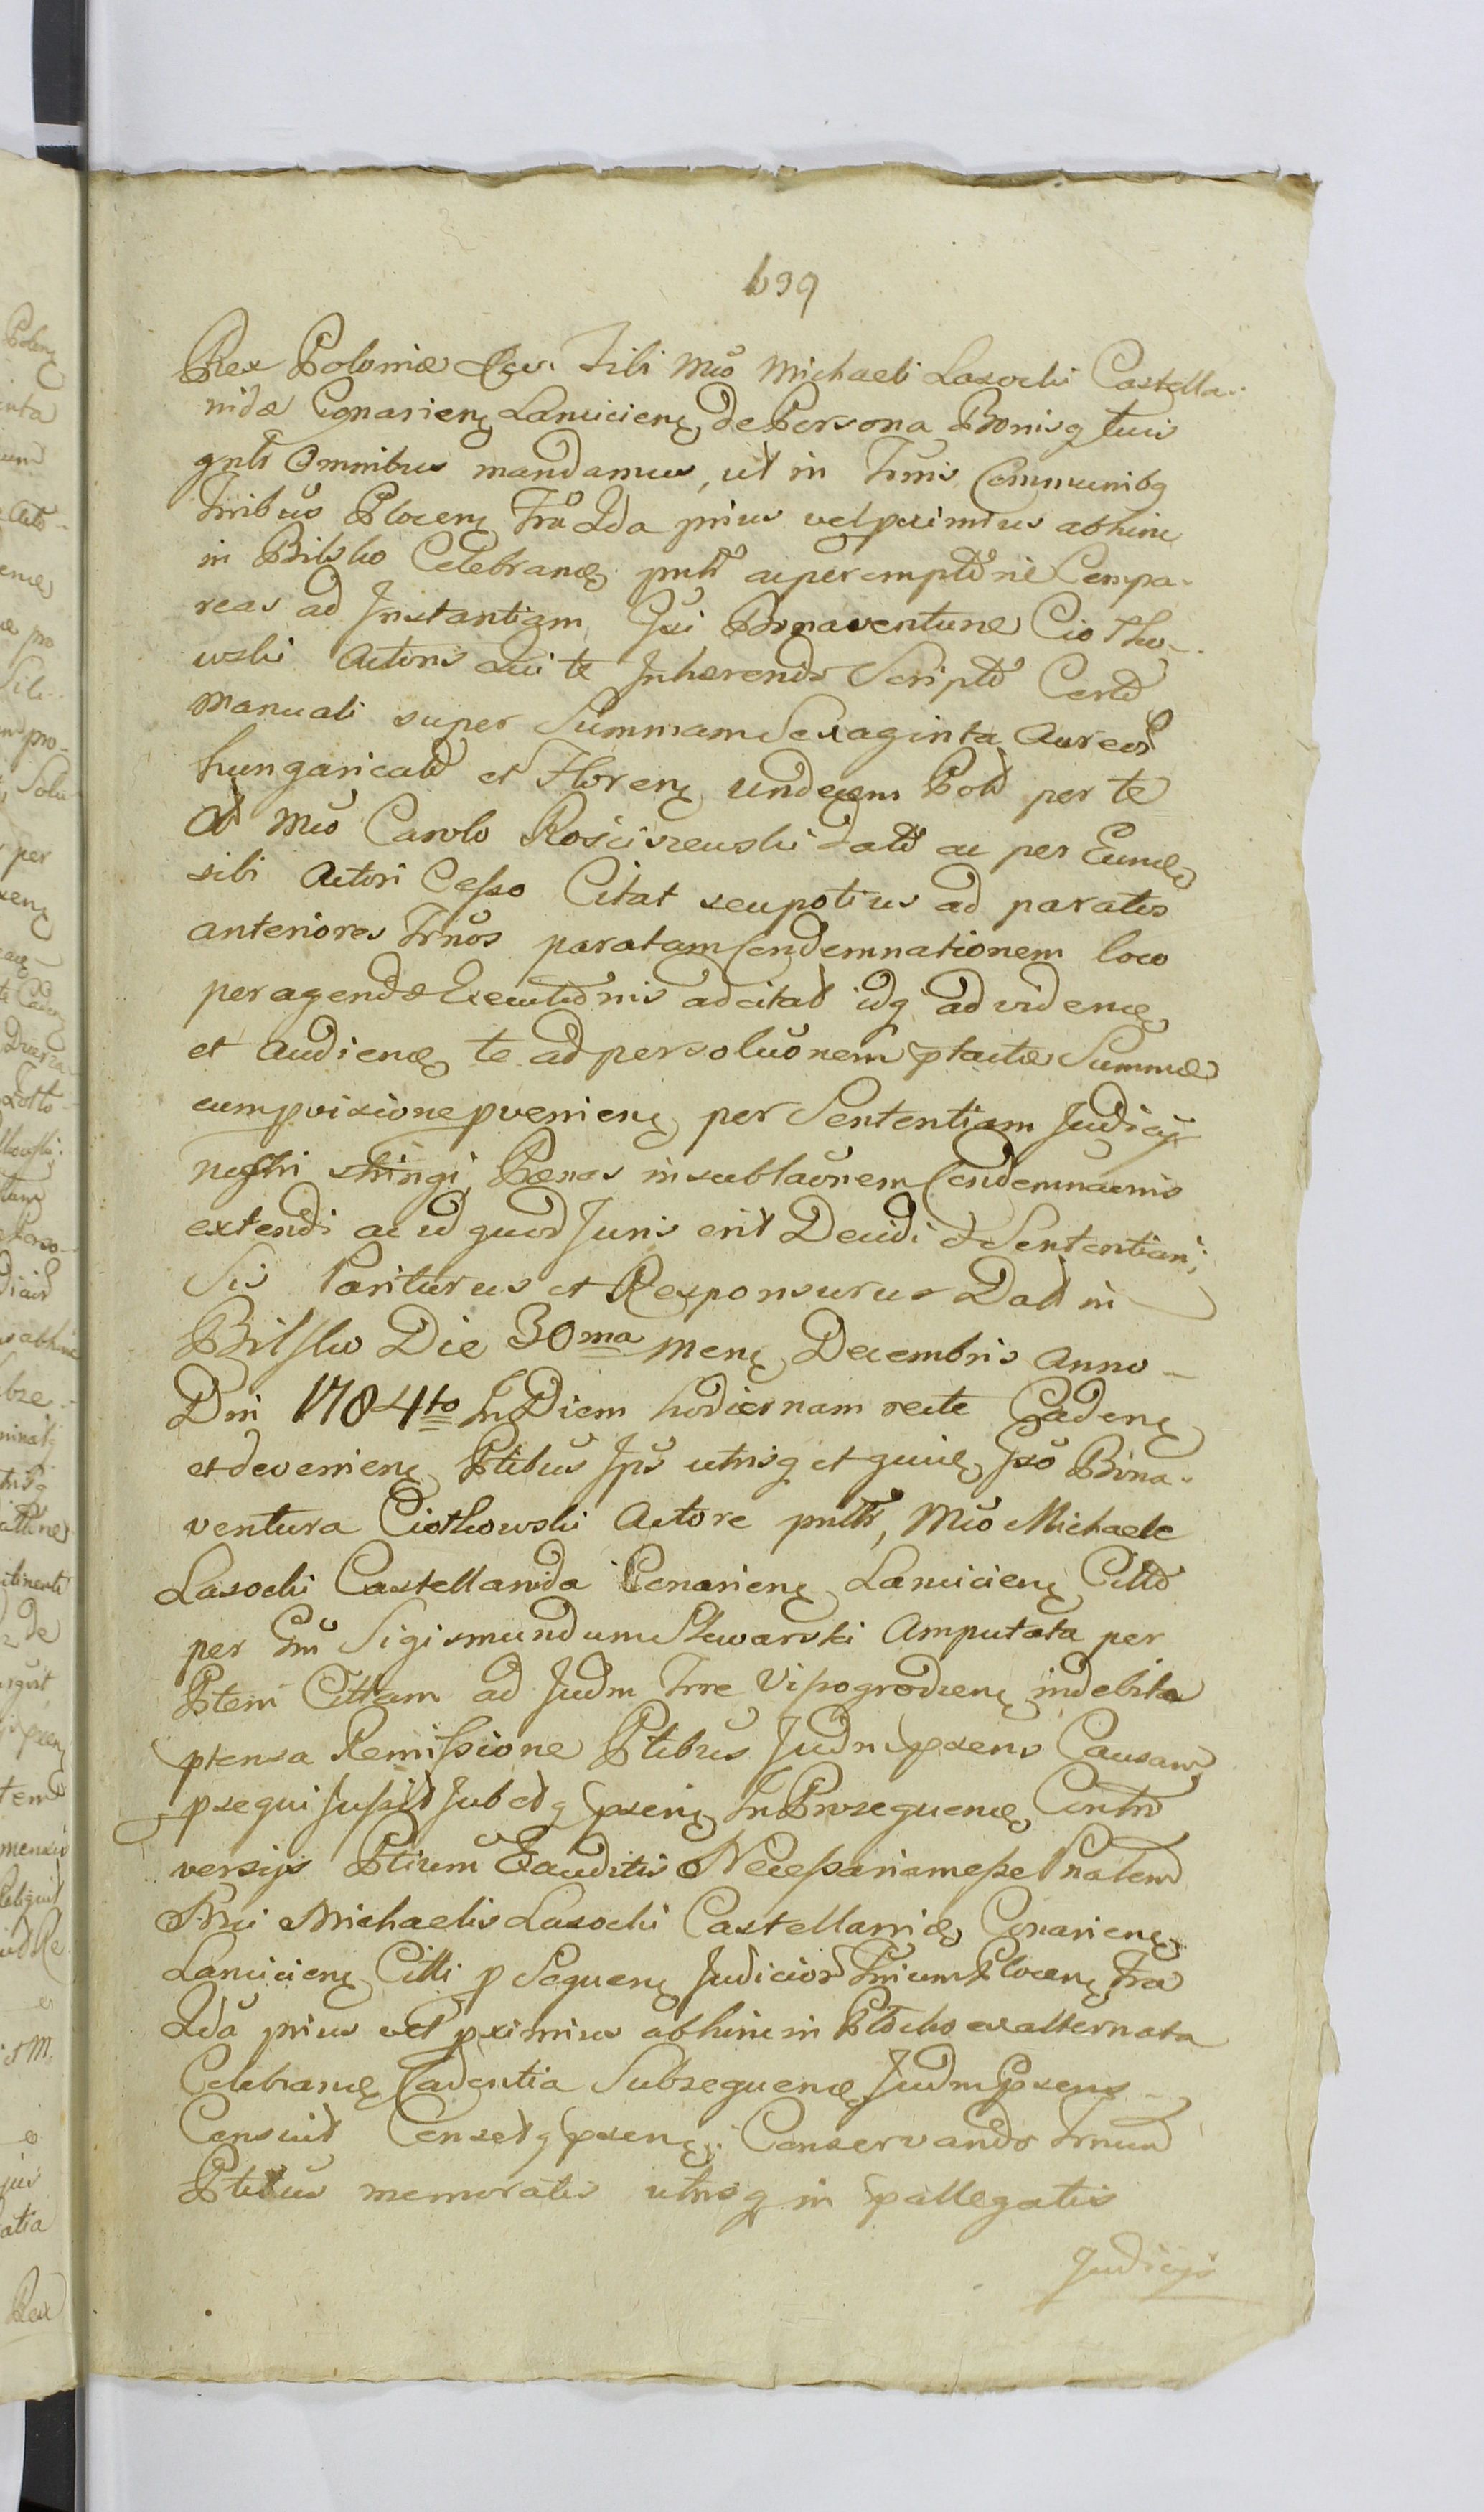 639
Rex Poloniæ &c. Tibi Mco Michaeli Lasocki Castella-
nidæ Conarieng Lancicieng de Persona Bonisq tuis
gnlr Omnibus mandamus, ut in Trmis Communibq
Trribus Ploceng Fra 2da prius vel pximius abhinc
in Bilsko Celebrang pnlr ac peremptorie Compa-
reas ad Instantiam Gsi Bonaventuræ Ciotko-
wski Actoris Qui te Inhærendo Scripto Certo
Manuali super Summam Sexaginta Aureor
hungaricalr et Floreng undecem Pol per te
Ol Mco Carolo Rościszewski Dato ac per Eund
sibi Actori Cesso Citat seu potius ad paratos
anteriores Trmos paratam Condemnationem loco
peragendæ Executionis adcitat idq ad videng
et audieng te ad persolvonem ptactæ Summæ
cum pvisione pvenieng per Sententiam Judicij
nostri stringi, Pænas in sublaonem Condemnaonis
extendi ac id quod Juris erit Decidi & Sententiari;
Sis Pariturus et Responsurus Dat in
Bilsko Die 30ma Meng Decembris Anno
Dni 1784to In Diem hodiernam recte Cadeng
et devenieng Ptibus Ips utrisq et quidem Gso Bona-
ventura Ciotkowski Actore pnlr, Mco Michaele
Lasocki Castellanida Conarieng Lancicieng Citto
per Gm Sigismundum Skwarski Amputata per
Ptem Cittam ad Judm Trre Vissogrodieng indebita
ptensa Remissione Ptibus Judm psens Causam
psequi Jussit Jubetq pseng In Proseguend Contro
versijs Ptium Exauditis Necessariam esse Pntem
Mci Michaelis Lasocki Castellanidæ Conarieng
Lancicieng Citti p Segueng Judicior Trrium Ploceng Fra
2da prius vel pximius abhinc in Płocko ex alternata
Celebrand Cadentia Subsequend Judm Psens
Censuit Censetq pseng. Conservando Trmum
Ptibus memoratis utrisq in pallegatis
Judicijs